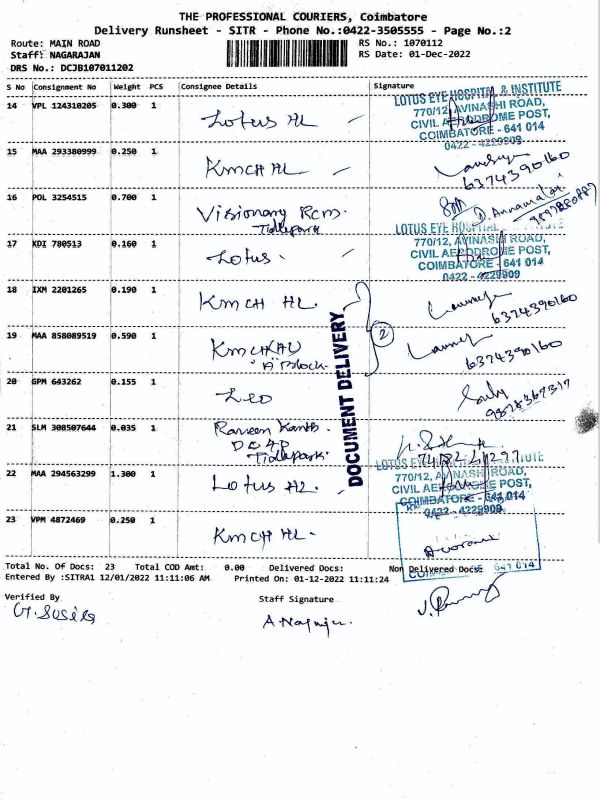 THE PROFESSIONAL COURIERS, Coimbatore
Delivery Runsheet - SITR - Phone No.:0422-3505555 - Page No.:2
Route: MAIN ROAD RS No.: 1070112
Staff: NAGARAJAN RS Date: 01-Dec-2022
DRS No.: DCJB107011202
S No Consignment No Weight PCS Consignee Details Signature
14 VPL 124310205 0.300 1 Lotus HL
LOTUS EYE HOSPITAL & INSTITUTE
770/12, AVINASHI ROAD,
CIVIL AERODROME POST,
COIMBATORE - 641 014
0422 - 4229909
15 MAA 293380999 0.250 1 KMCH HL
6374390160
16 POL 3254515 0.700 1 Visionary Rcm.
Tidlepark
D. Annamalai
17 KDI 780513 0.160 1 Lotus.
LOTUS EYE HOSPITAL & INSTITUTE
770/12, AVINASHI ROAD,
CIVIL AERODROME POST,
COIMBATORE - 641 014
0422 - 4229909
18 IXM 2201265 0.190 1 KMCH HL.
6374390160
19 MAA 858089519 0.590 1 KMCH
"A" Block
2
6374390160
20 GPM 643262 0.155 1 Leo
21 SLM 308507644 0.035 1
Tidlepark
DOCUMENT DELIVERY
22 MAA 294563299 1.300 1 Lotus HL.
770/12, AVINASHI ROAD,
CIVIL AERODROME POST,
COIMBATORE - 641 014
0422 - 4229909
23 VPM 4872469 0.250 1 KMCH HL.
Total No. Of Docs: 23 Total COD Amt: 0.00 Delivered Docs: Non Delivered Docs:
Entered By :SITRA1 12/01/2022 11:11:06 AM Printed On: 01-12-2022 11:11:24
Verified By Staff Signature